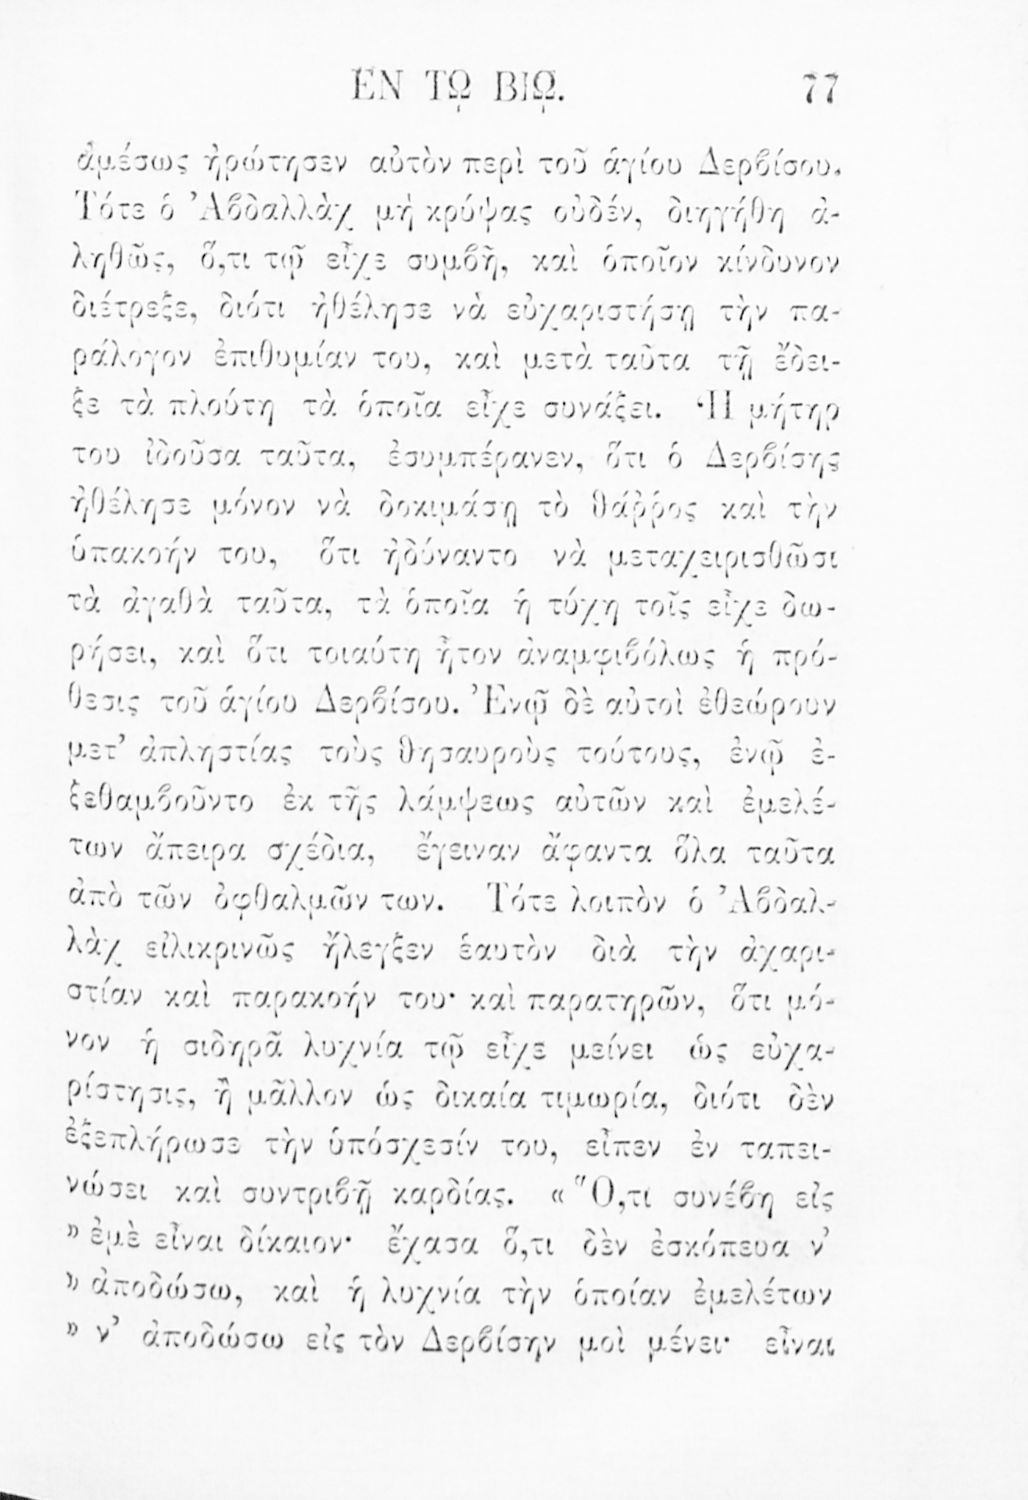 ΕΝ ΤΩ ΒΙΩ. 77
ἀμέσως ἠρώτησεν αὐτὸν περὶ τοῦ ἁγίου Δερβίσου.
Τότε ὁ Ἀβδαλλὰχ μὴ κρύψας οὐδέν, διηγήθη ἀ-
ληθῶς, ὅ,τι τῷ εἶχε συμβῆ, καὶ ὁποῖον κίνδυνον
διέτρεξε, διότι ἠθέλησε νὰ εὐχαριστήσῃ τὴν πα-
ράλογον ἐπιθυμίαν του, καὶ μετὰ ταῦτα τῇ ἔδει-
ξε τὰ πλούτη τὰ ὁποῖα εἶχε συνάξει. Ἡ μήτηρ
του ἰδοῦσα ταῦτα, ἐσυμπέρανεν, ὅτι ὁ Δερβίσης
ἠθέλησε μόνον νὰ δοκιμάσῃ τὸ θάῤῥος καὶ τὴν
ὑπακοήν του, ὅτι ἠδύναντο νὰ μεταχειρισθῶσι
τὰ ἀγαθὰ ταῦτα, τὰ ὁποῖα ἡ τύχη τοῖς εἶχε δω-
ρήσει, καὶ ὅτι τοιαύτη ἦτον ἀναμφιβόλως ἡ πρό-
θεσις τοῦ ἁγίου Δερβίσου. Ἐνῷ δὲ αὐτοὶ ἐθεώρουν
μετ’ ἀπληστίας τοὺς θησαυροὺς τούτους, ἐνῷ ἐ-
ξεθαμβοῦντο ἐκ τῆς λάμψεως αὐτῶν καὶ ἐμελέ-
των ἄπειρα σχέδια, ἔγειναν ἄφαντα ὅλα ταῦτα
ἀπὸ τῶν ὀφθαλμῶν των. Τότε λοιπὸν ὁ Ἀβδαλ-
λὰχ εἰλικρινῶς ἤλεγξεν ἑαυτὸν διὰ τὴν ἀχαρι-
στίαν καὶ παρακοήν του· καὶ παρατηρῶν, ὅτι μό-
νον ἡ σιδηρᾶ λυχνία τῷ εἶχε μείνει ὡς εὐχα-
ρίστησις, ἢ μᾶλλον ὡς δικαία τιμωρία, διότι δὲν
ἐξεπλήρωσε τὴν ὑπόσχεσίν του, εἶπεν ἐν ταπει-
νώσει καὶ συντριβῇ καρδίας. « Ὅ,τι συνέβη εἰς
» ἐμὲ εἶναι δίκαιον· ἔχασα ὅ,τι δὲν ἐσκόπευα ν’
» ἀποδώσω, καὶ ἡ λυχνία τὴν ὁποίαν ἐμελέτων
» ν’ ἀποδώσω εἰς τὸν Δερβίσην μοὶ μένει· εἶναι